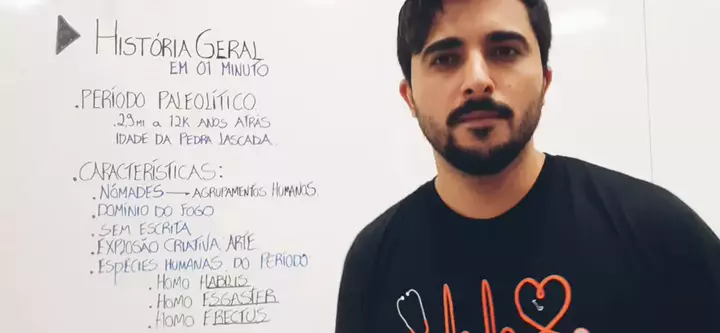 HISTÓRIA GERAL
EM 01 MINUTO
.PERÍODO PALEOLÍTICO
.2,9mi a 12K ANOS ATRÁS
IDADE DA PEDRA LASCADA.
.CARACTERÍSTICAS:
.NÔMADES → AGRUPAMENTOS HUMANOS.
.DOMÍNIO DO FOGO
.SEM ESCRITA
.EXPLOSÃO CRIATIVA ARTE
.ESPÉCIES HUMANAS DO PERÍODO
.HOMO HABILIS
.HOMO ESGASTER
.HOMO ERECTUS